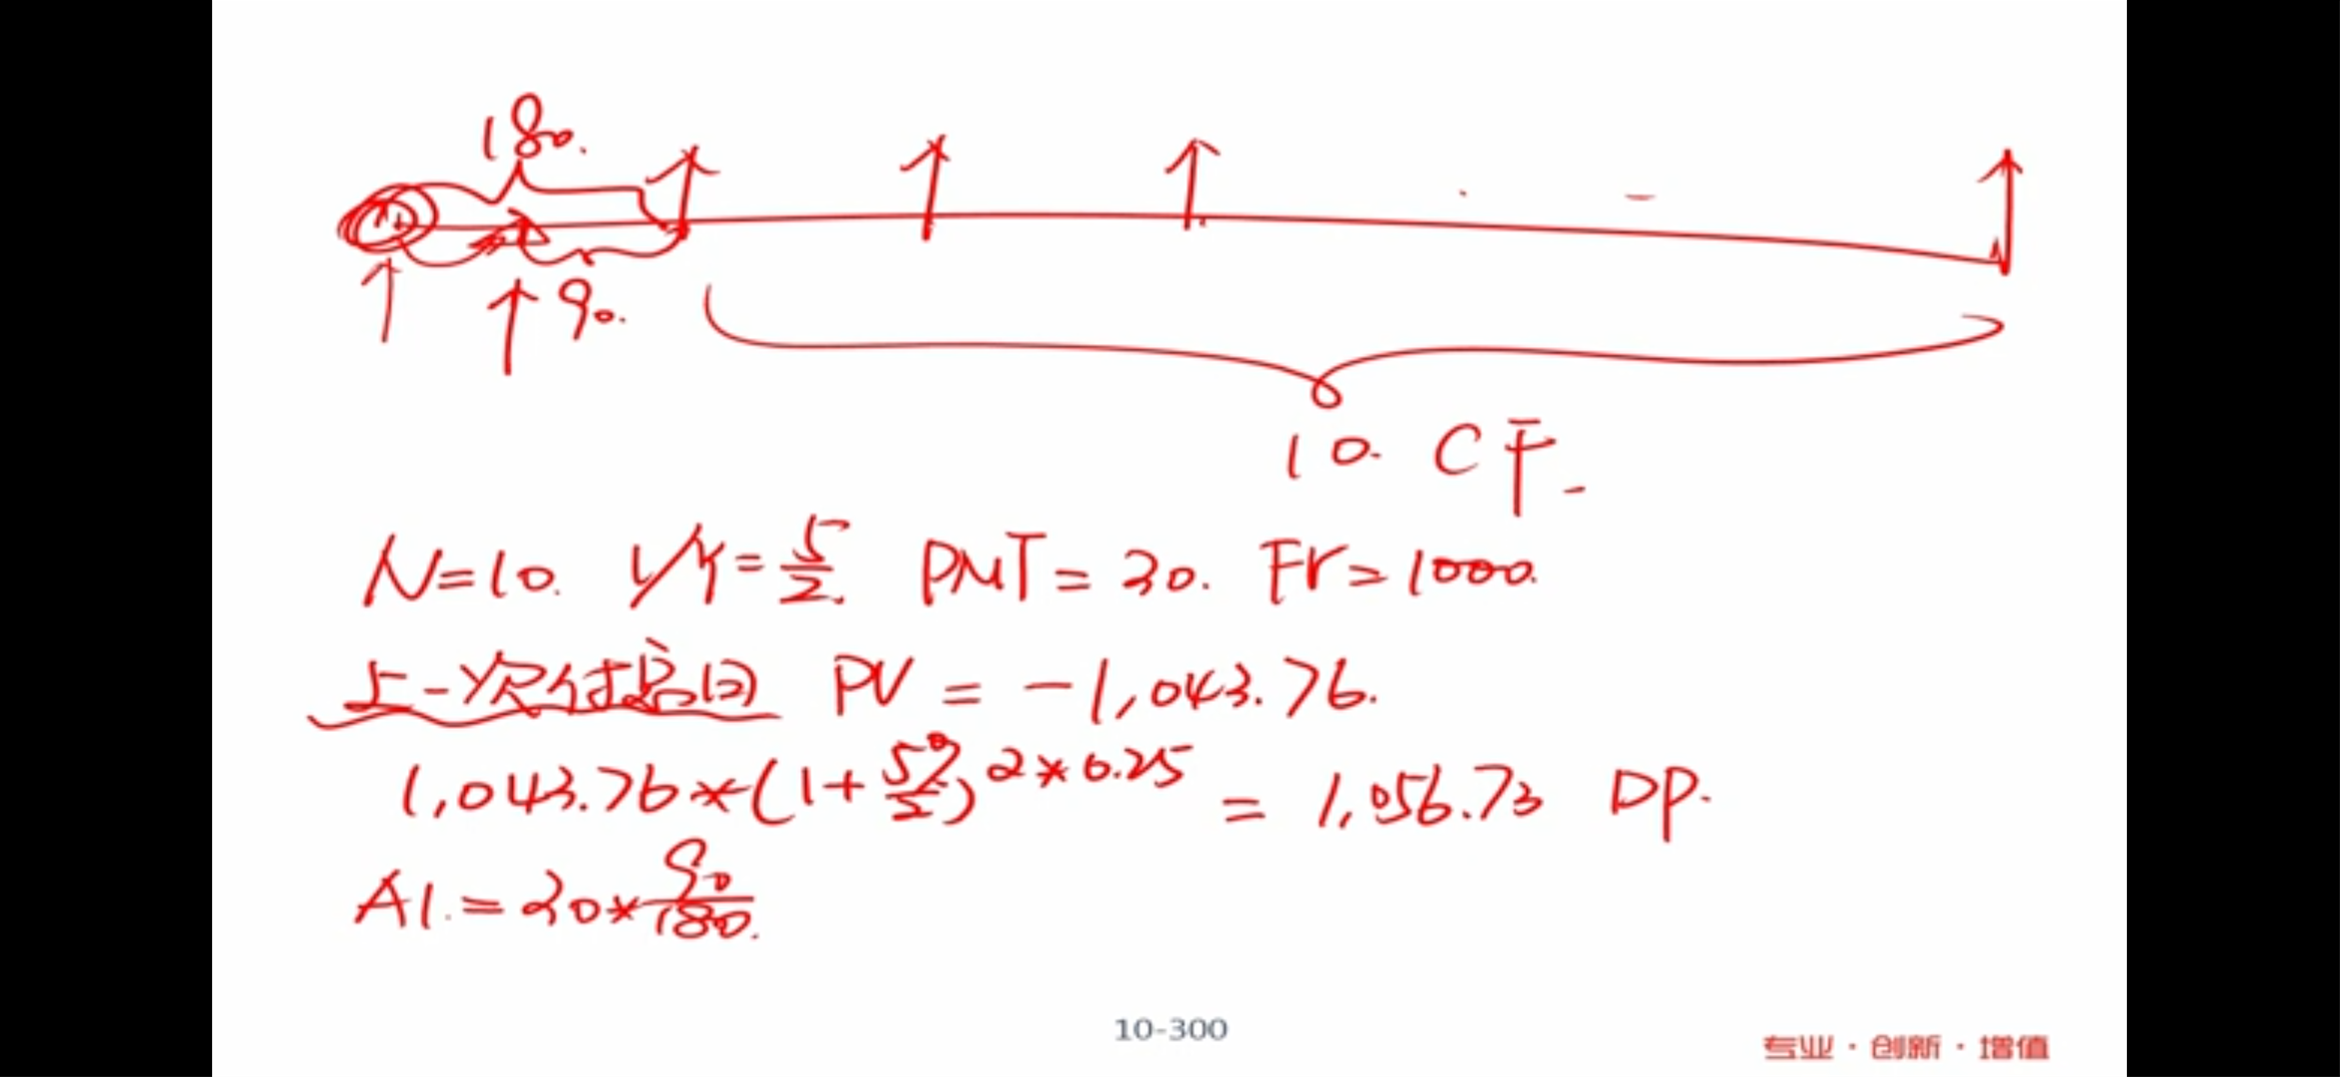 180.
90.
10. CF
N=10. I/Y=5/2 PMT=30. FV=1000.
上一次付息日 PV = -1,043.76.
1,043.76*(1+5%/2)^2*0.25 = 1,056.73 DP.
AI.=30*90/180.
10-300
专业·创新·增值